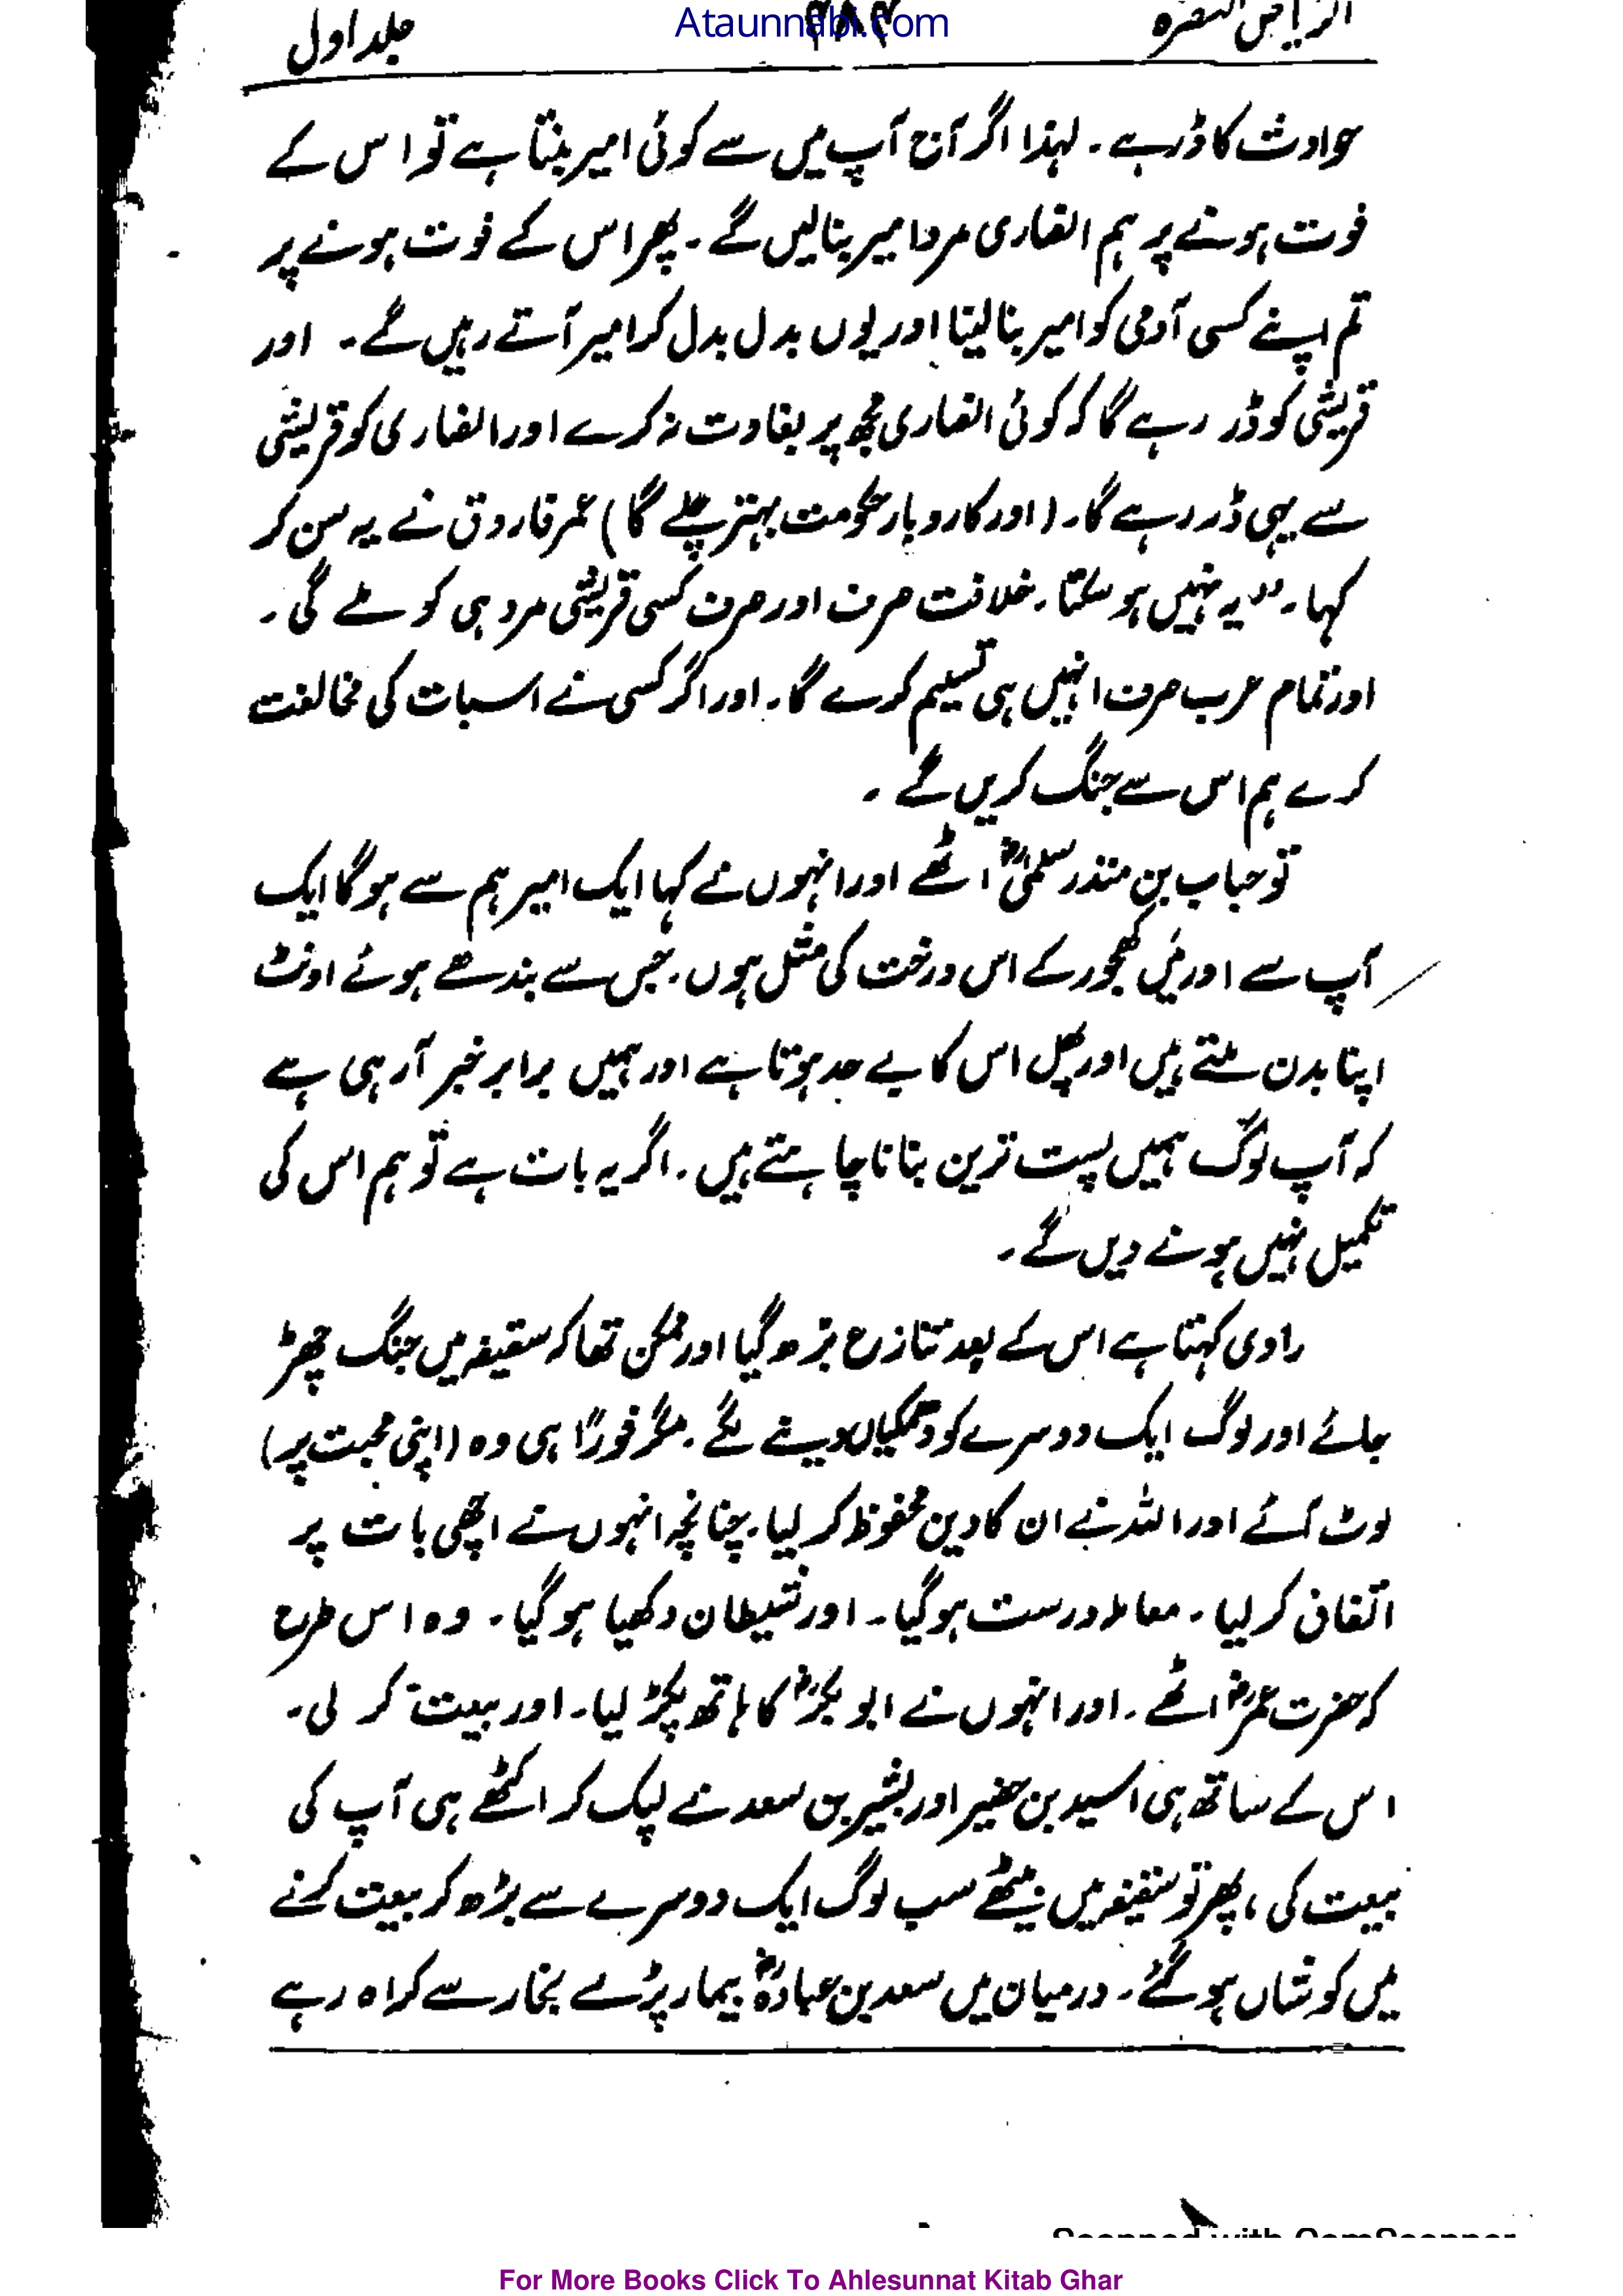 الریاض النضرہ
Ataunnabi.com
جلد اول
حوادث کا ڈر ہے ۔ لہذا اگر آج آپ میں سے کوئی امیر بنتا ہے تو اس کے
فوت ہونے پر ہم انصاری مرد امیر بنالیں گے ۔ پھر اس کے فوت ہونے پر
تم اپنے کسی آدمی کو امیر بنا لینا اور یوں بدل بدل کر امیر آتے رہیں گے ۔ اور
قریشی کو ڈر رہے گا کہ کوئی انصاری مجھ پر بغاوت نہ کرے اور انصاری کو قریشی
سے یہی ڈر رہے گا ۔ (اور کاروبار حکومت بہتر چلے گا) عمر فاروق نے یہ سن کر
کہا ۔ "یہ نہیں ہو سکتا ۔ خلافت صرف اور صرف کسی قریشی مرد ہی کو ملے گی ۔
اور تمام عرب صرف انہیں ہی تسلیم کرے گا ۔ اور اگر کسی نے اسبات کی مخالفت
کرے ہم اس سے جنگ کریں گے ۔
تو حباب بن منذر سلمیؓ اٹھے اور انہوں نے کہا ایک امیر ہم سے ہو گا ایک
آپ سے اور میں کھجور کے اس درخت کی مثل ہوں ۔ جس سے بندھے ہوئے اونٹ
اپنا بدن ملتے ہیں اور پھل اس کا بے حد ہوتا ہے اور ہمیں برابر خبر آ رہی ہے
کہ آپ لوگ ہمیں پست ترین بنانا چاہتے ہیں ۔ اگر یہ بات ہے تو ہم اس کی
تکمیل نہیں ہونے دیں گے ۔
راوی کہتا ہے اس کے بعد تنازع بڑھ گیا اور ممکن تھا کہ سقیفہ میں جنگ چھڑ
جائے اور لوگ ایک دوسرے کو دھمکیاں دینے لگے ۔ مگر فوراً ہی وہ (اپنی محبت پر)
لوٹ آئے اور اللہ نے ان کا دین محفوظ کر لیا ۔ چنانچہ انہوں نے اچھی بات پر
اتفاق کر لیا ۔ معاملہ درست ہو گیا ۔ اور شیطان دکھیا ہو گیا ۔ وہ اس طرح
کہ حضرت عمرؓ اٹھے ۔ اور انہوں نے ابو بکرؓ کا ہاتھ پکڑ لیا ۔ اور بیعت کر لی ۔
اس کے ساتھ ہی اسید بن حضیر اور بشیر بن سعد نے لپک کر اکٹھے ہی آپ کی
بیعت کی ، پھر تو سقیفہ میں بیٹھے سب لوگ ایک دوسرے سے بڑھ کر بیعت کرنے
میں کوشاں ہو گئے ۔ درمیان میں سعد بن عبادہؓ بیمار پڑے بخار سے کراہ رہے
Scanned with CamScanner
For More Books Click To Ahlesunnat Kitab Ghar